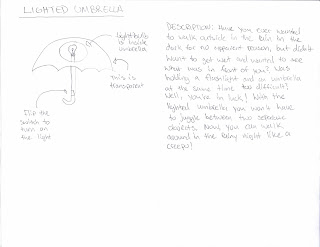 LIGHTED UMBRELLA
light bulb
is inside
umbrella
this is
transparent
flip the
switch to
turn on
the light
DESCRIPTION: Have you ever wanted
to walk outside in the rain in the
dark for no apparent reason, but didn't
want to get wet and wanted to see
what was in front of you? Was
holding a flashlight and an umbrella
at the same time too difficult?
Well, you're in luck! With the
lighted umbrella you won't have
to juggle between two separate
objects. Now you can walk
around in the rainy night like a
creep!